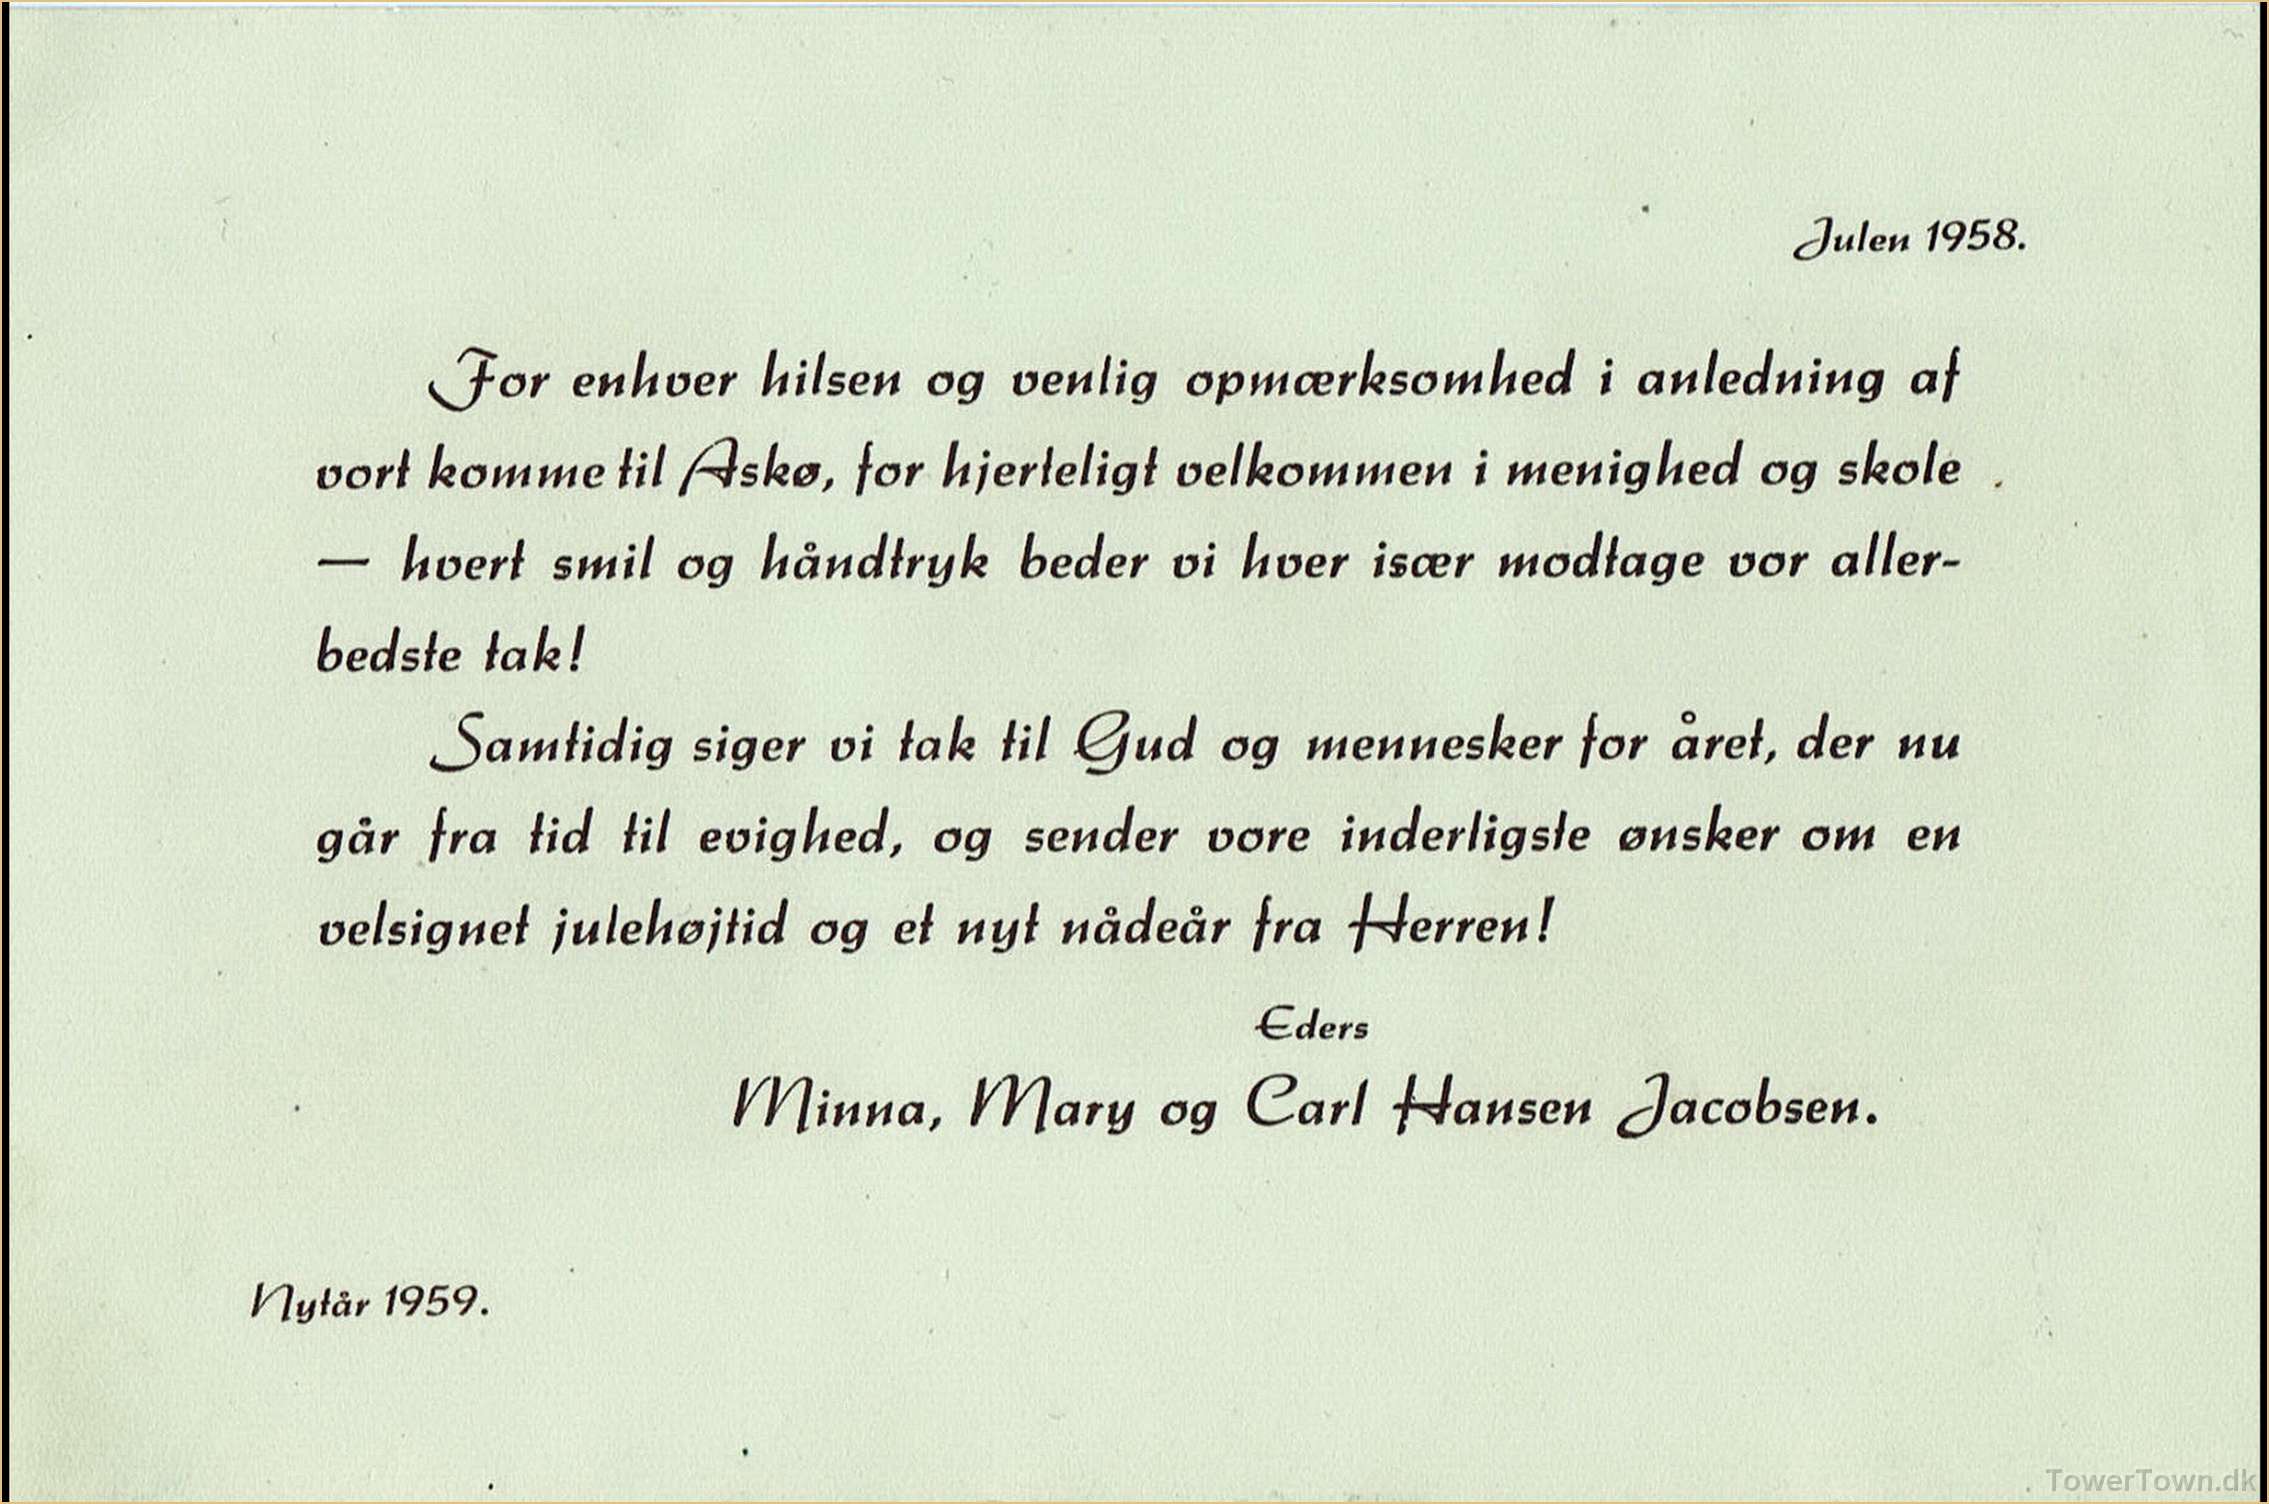 Julen 1958.
For enhver hilsen og venlig opmærksomhed i anledning af
vort komme til Askø, for hjerteligt velkommen i menighed og skole
— hvert smil og håndtryk beder vi hver især modtage vor aller-
bedste tak!
Samtidig siger vi tak til Gud og mennesker for året, der nu
går fra tid til evighed, og sender vore inderligste ønsker om en
velsignet julehøjtid og et nyt nådeår fra Herren!
Eders
Minna, Mary og Carl Hansen Jacobsen.
Nytår 1959.
TowerTown.dk